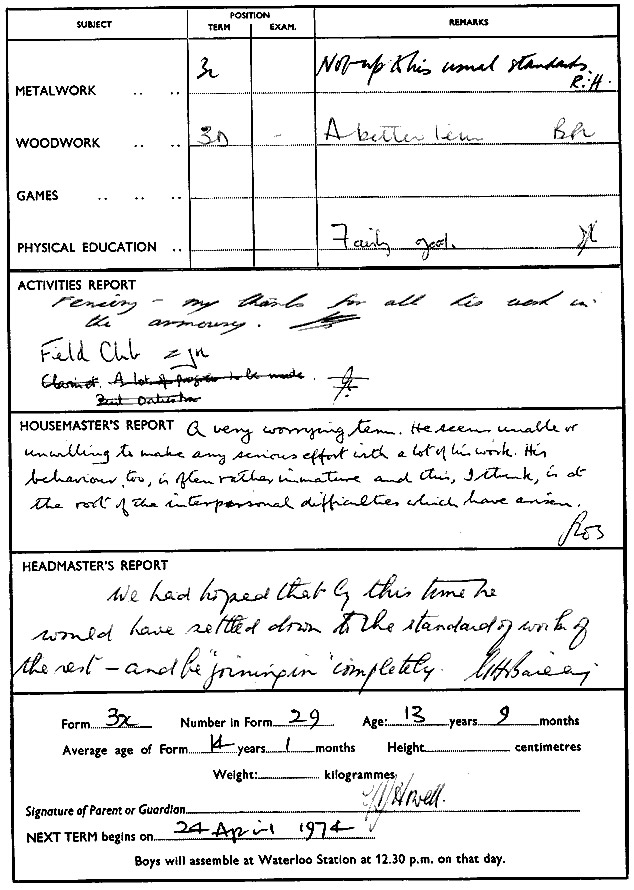 SUBJECT POSITION REMARKS
TERM EXAM.
METALWORK .. .. Not up to his usual standards. R.H.
WOODWORK .. .. - A better term
GAMES .. .. ..
PHYSICAL EDUCATION .. Fairly good.
ACTIVITIES REPORT
Fencing - my thanks for all his work in
the armoury.
Field Club
Clarinet. A lot of progress to be made.
HOUSEMASTER'S REPORT A very worrying term. He seems unable or
unwilling to make any serious effort with a lot of his work. His
behaviour, too, is often rather immature and this, I think, is at
the root of the interpersonal difficulties which have arisen.
HEADMASTER'S REPORT
We had hoped that by this time he
would have settled down to the standard of work of
the rest - and be 'joining in' completely.
Form 3x Number in Form 29 Age: 13 years 9 months
Average age of Form 14 years 1 months Height centimetres
Weight: kilogrammes
Signature of Parent or Guardian Howell.
NEXT TERM begins on 24 April 1974
Boys will assemble at Waterloo Station at 12.30 p.m. on that day.